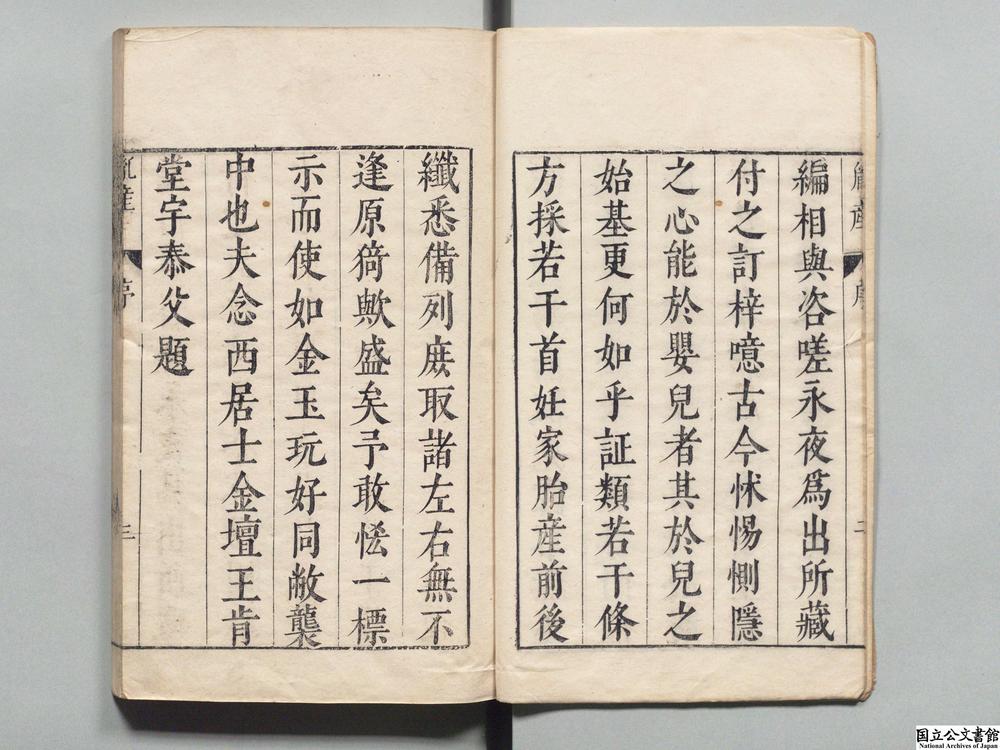 編相與咨嗟永夜爲出所藏
付之訂梓噫古今怵惕惻隱
之心能於嬰兒者其於兒之
始基更何如乎証類若干條
方採若干首妊家胎産前後
纖悉備列庶取諸左右無不
逢原猗歟盛矣予敢恡一標
示而使如金玉玩好同敝襲
中也夫念西居士金壇王肯
堂宇泰父題
二
三
国立公文書館
National Archives of Japan